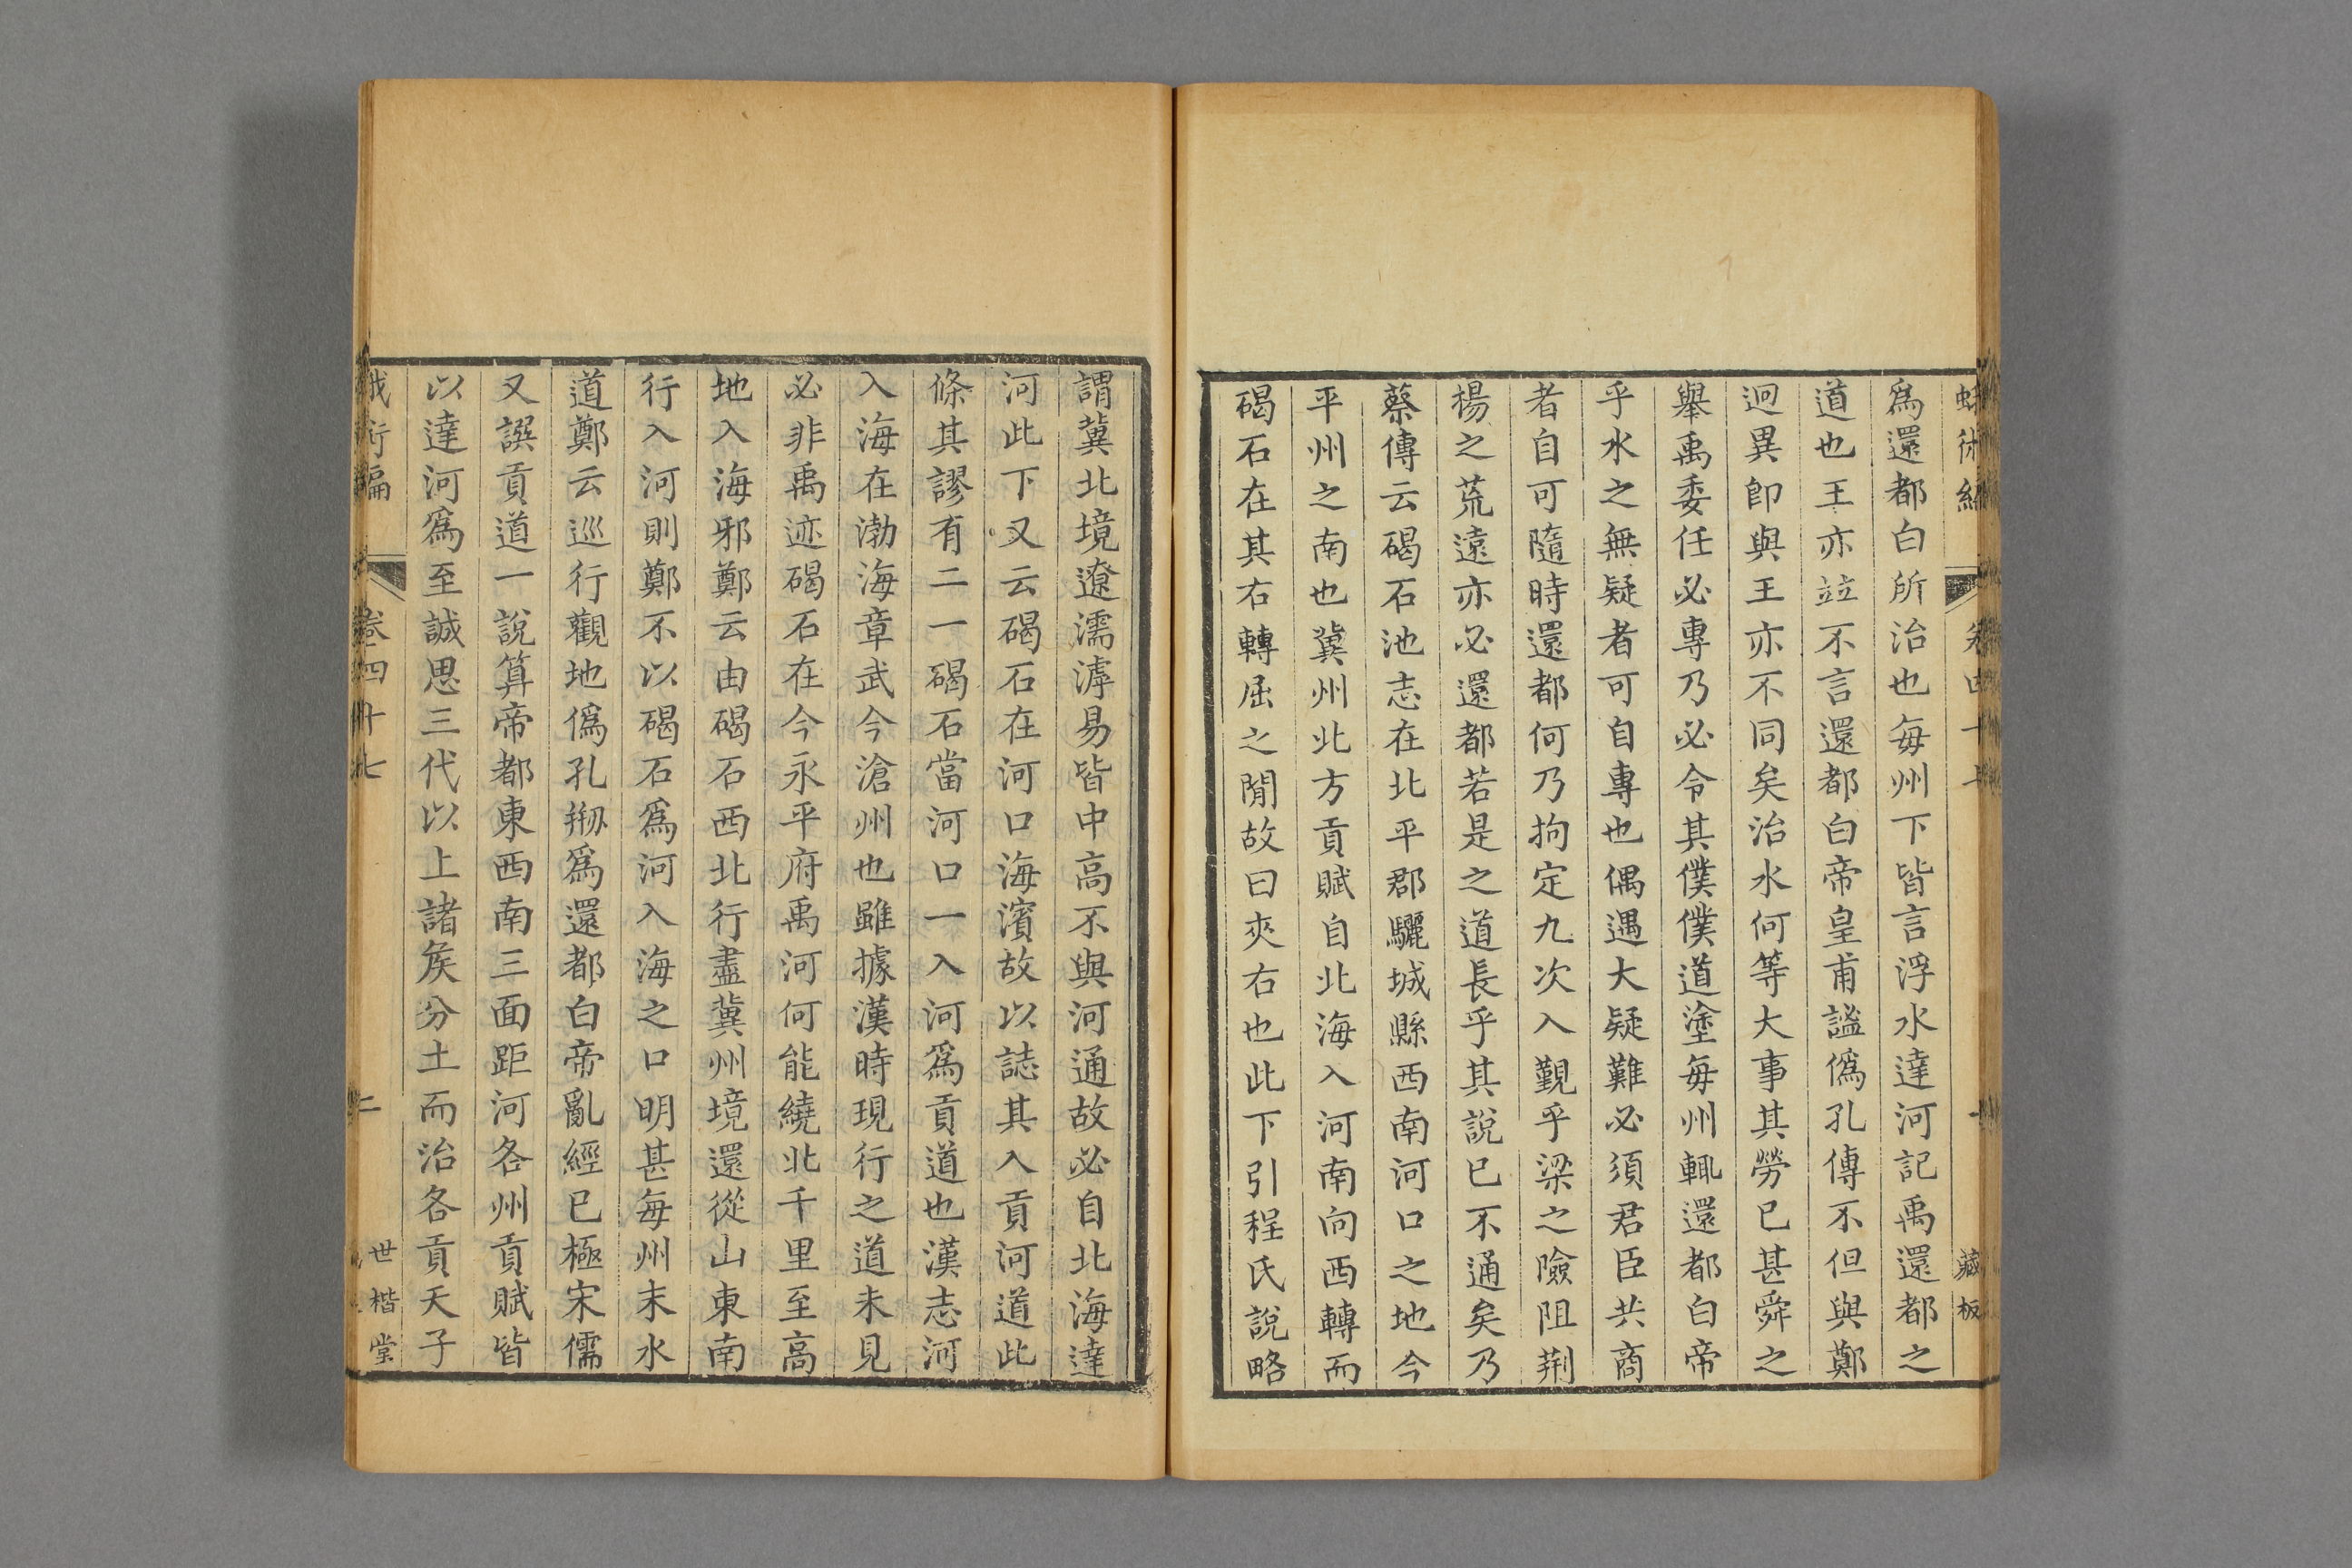 爲還都白所治也毎州下皆言浮水達河記禹還都之
道也王亦竝不言還都白帝皇甫謐僞孔傳不但與鄭
迥異卽與王亦不同矣治水何等大事其勞已甚舜之
舉禹委任必專乃必令其僕僕道塗毎州輒還都白帝
乎水之無疑者可自專也偶遇大疑難必須君臣共商
者自可隨時還都何乃拘定九次入覲乎梁之險阻荆
楊之荒遠亦必還都若是之道長乎其說已不通矣乃
蔡傳云碣石池志在北平郡驪城縣西南河口之地今
平州之南也冀州北方貢賦自北海入河南向西轉而
碣石在其右轉屈之閒故曰夾右也此下引程氏說略
謂冀北境遼濡滹易皆中高不與河通故必自北海達
河此下又云碣石在河口海濱故以誌其入貢河道此
條其謬有二一碣石當河口一入河爲貢道也漢志河
入海在渤海章武今滄州也雖據漢時現行之道未見
必非禹迹碣石在今永平府禹河何能繞北千里至高
地入海邪鄭云由碣石西北行盡冀州境還從山東南
行入河則鄭不以碣石爲河入海之口明甚毎州末水
道鄭云巡行觀地僞孔剏爲還都白帝亂經已極宋儒
又譔貢道一說算帝都東西南三面距河各州貢賦皆
以達河爲至誠思三代以上諸矦分土而治各貢天子
蛾術編
卷四十七
二
世楷堂
藏板